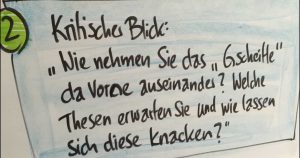 2
Kritischer Blick:
„Wie nehmen Sie das „Gscheite"
da vorne auseinander? Welche
Thesen erwarten Sie und wie lassen
sich diese knacken?"